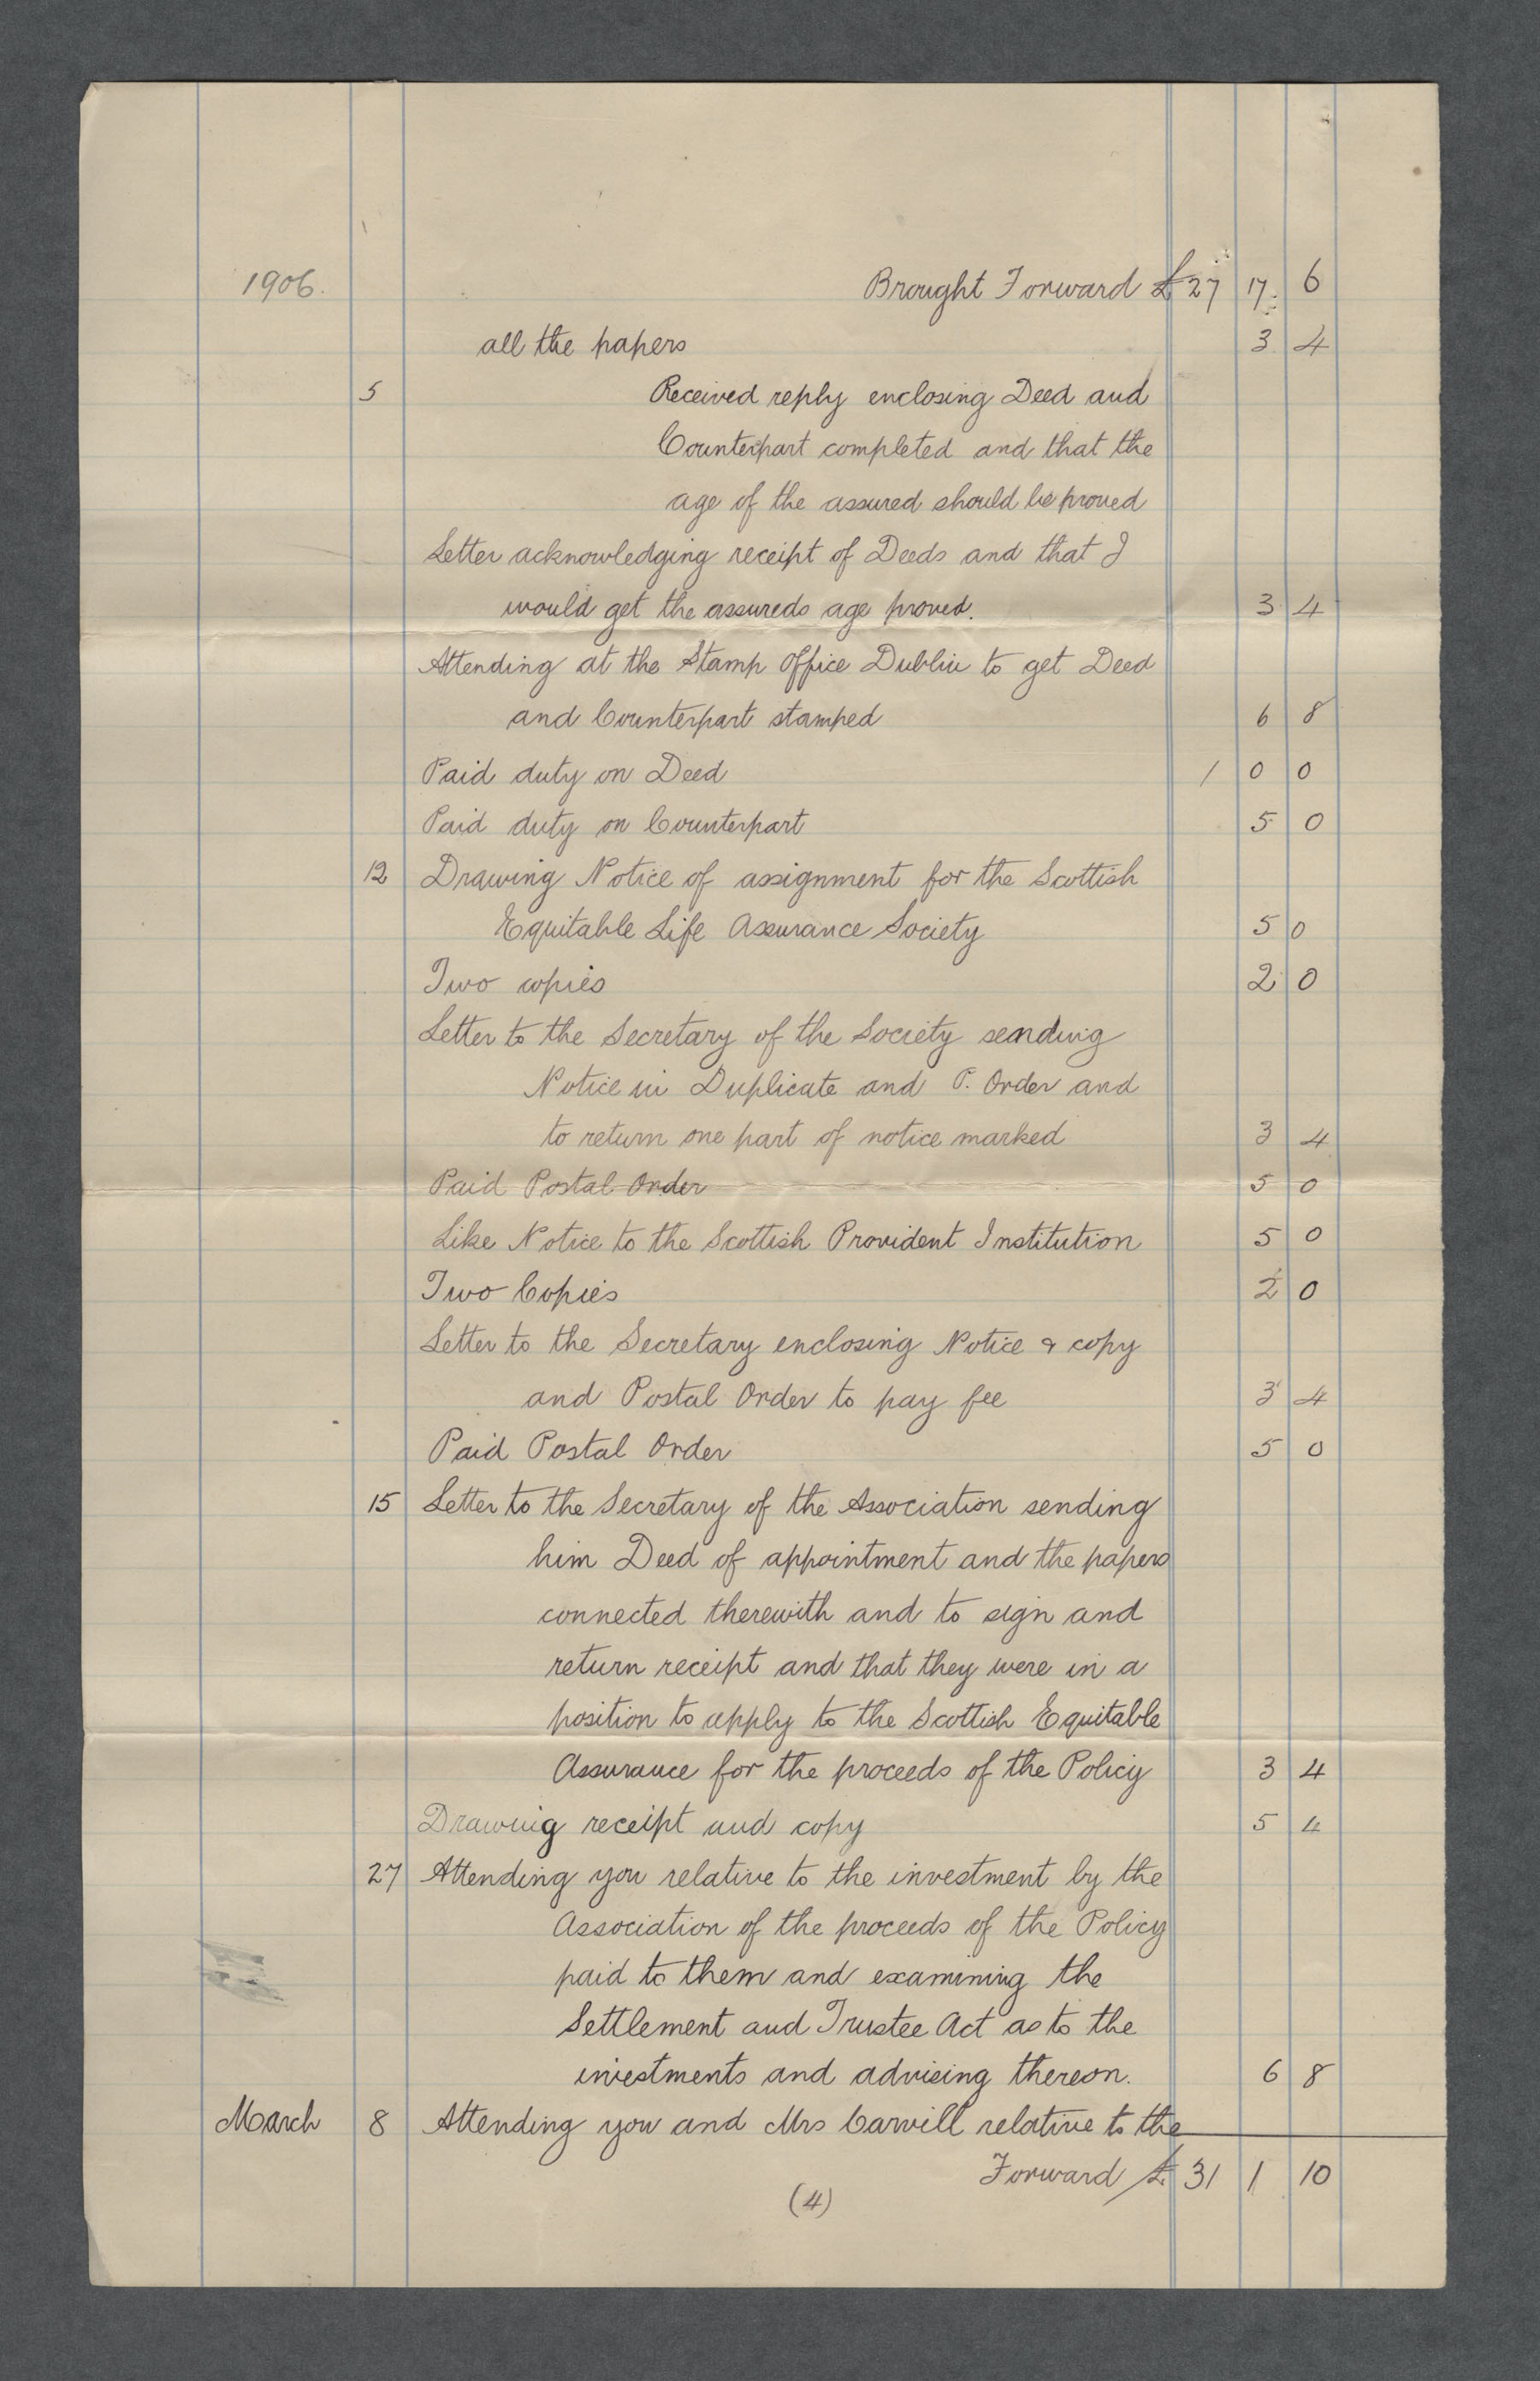 1906. Brought Forward £ 27 17 6
all the papers 3 4
5 Received reply enclosing Deed and
Counterpart completed and that the
age of the assured should be proved
Letter acknowledging receipt of Deeds and that I
would get the assureds age proved. 3 4
Attending at the Stamp Office Dublin to get Deed
and Counterpart stamped 6 8
Paid duty on Deed 1 0 0
Paid duty on Counterpart 5 0
12 Drawing Notice of assignment for the Scottish
Equitable Life Assurance Society 5 0
Two copies 2 0
Letter to the Secretary of the Society sending
Notice in Duplicate and P. Order and
to return one part of notice marked 3 4
Paid Postal Order 5 0
Like Notice to the Scottish Provident Institution 5 0
Two Copies 2 0
Letter to the Secretary enclosing Notice & copy
and Postal Order to pay fee 3 4
Paid Postal Order 5 0
15 Letter to the Secretary of the Association sending
him Deed of appointment and the papers
connected therewith and to sign and
return receipt and that they were in a
position to apply to the Scottish Equitable
Assurance for the proceeds of the Policy 3 4
Drawing receipt and copy 5 4
27 Attending you relative to the investment by the
Association of the proceeds of the Policy
paid to them and examining the
Settlement and Trustee Act as to the
investments and advising thereon. 6 8
March 8 Attending you and Mrs Carvill relative to the
Forward £ 31 1 10
(4)